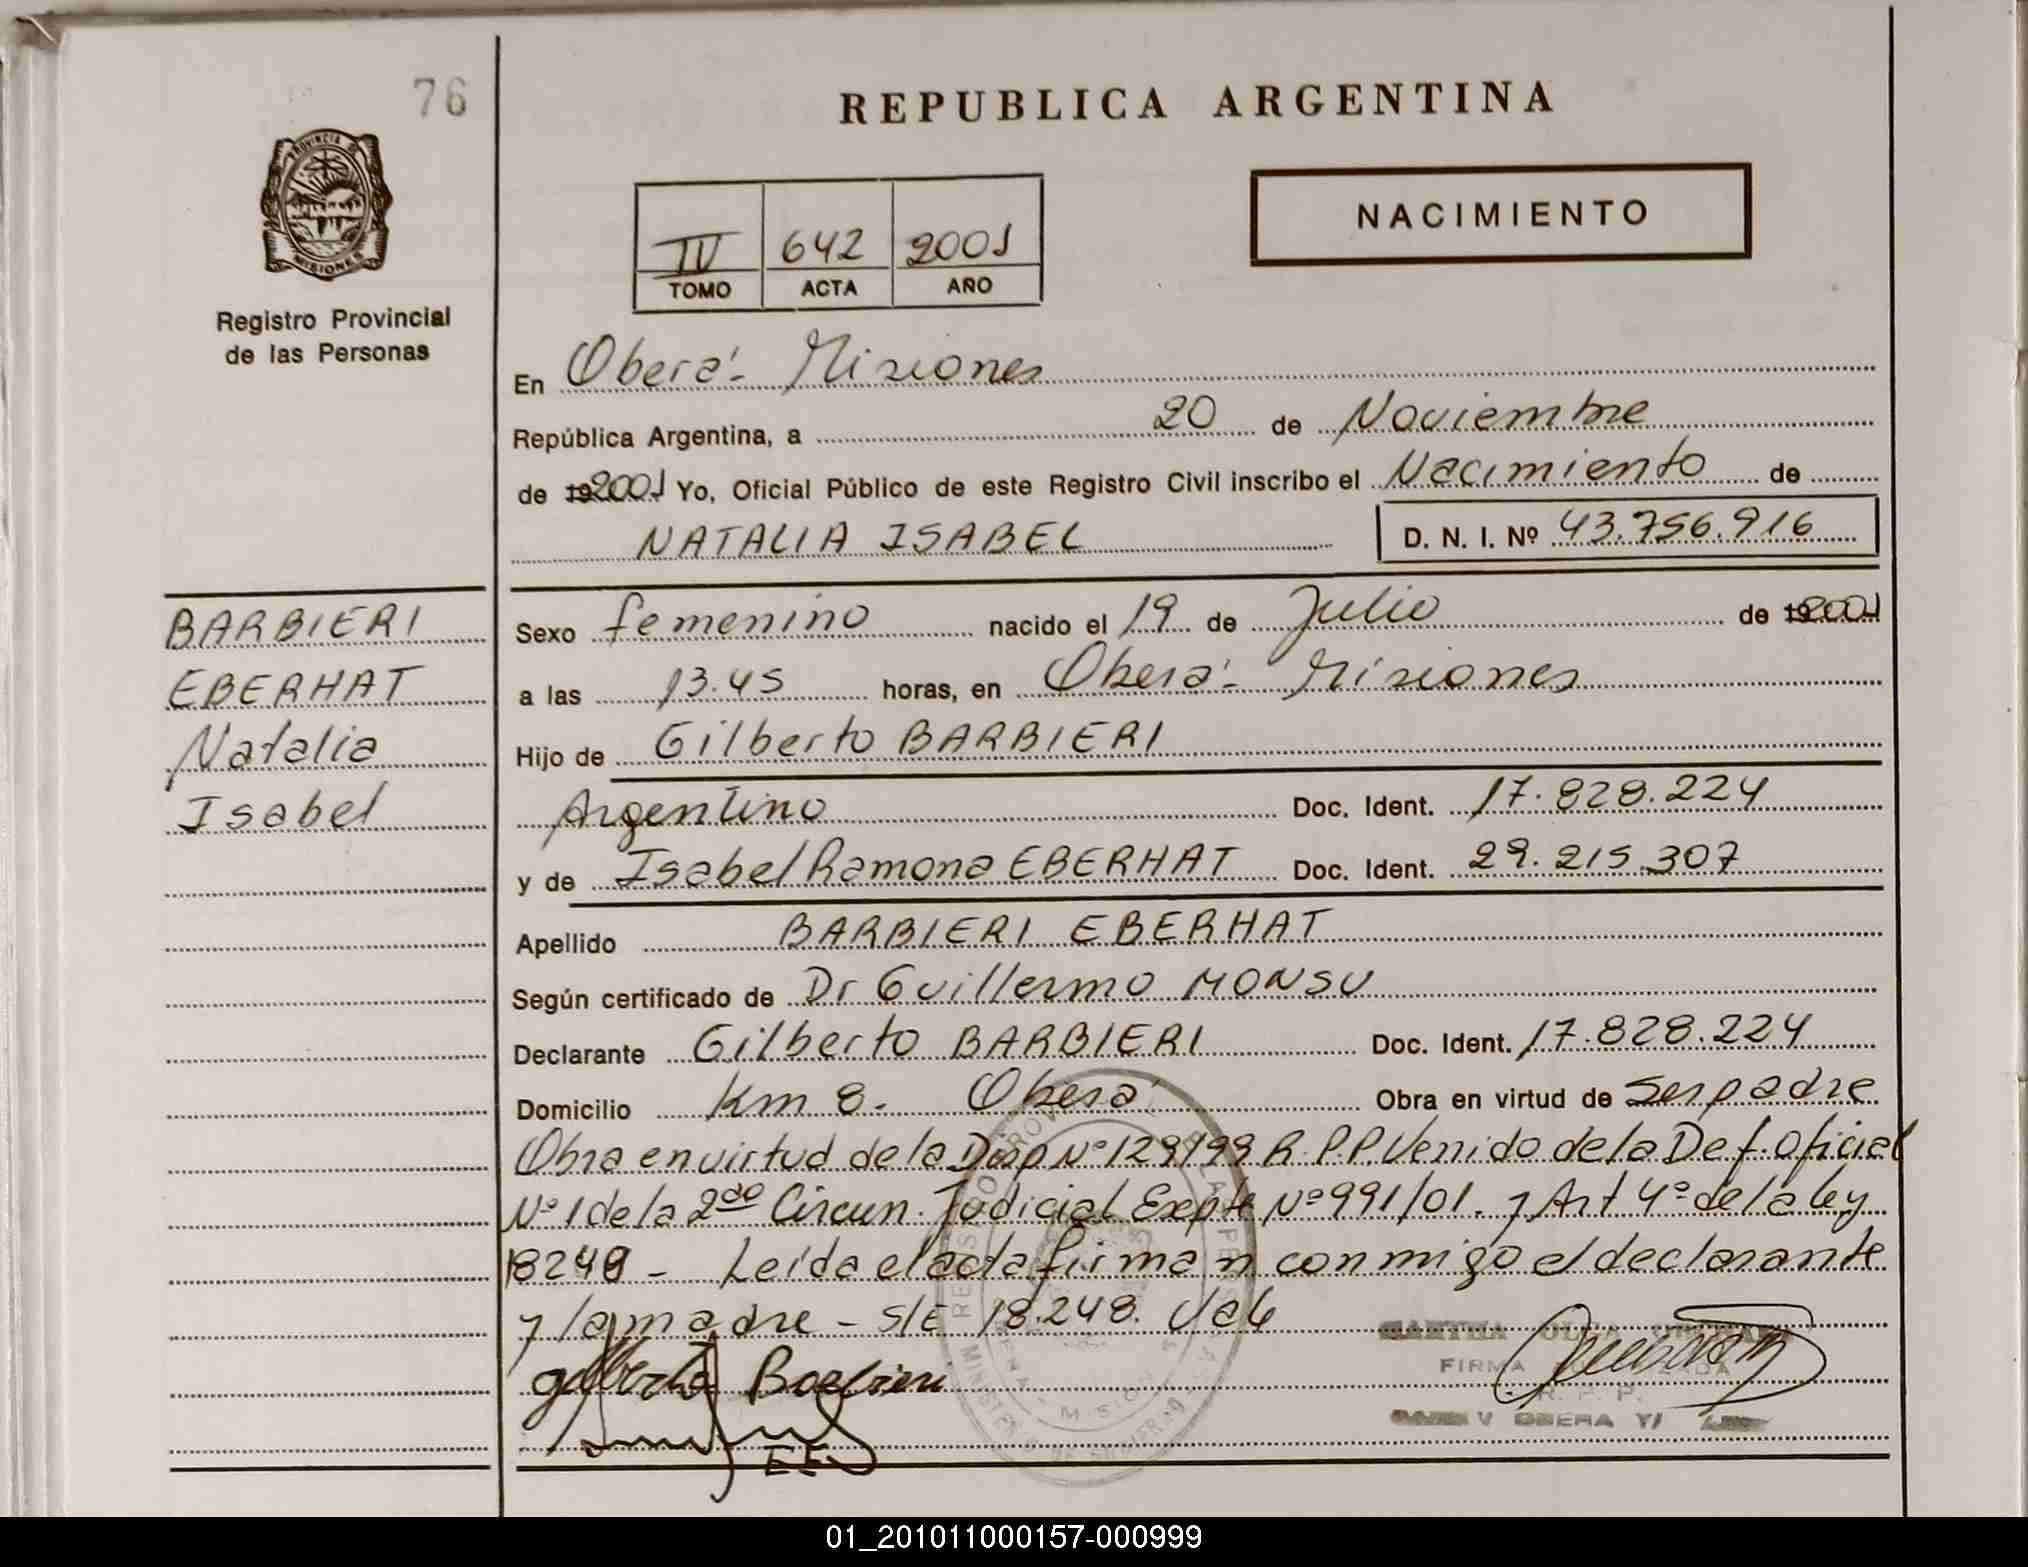 76
REPUBLICA ARGENTINA
PROVINCIA DE
MISIONES
Registro Provincial
de las Personas
IV 642 2001
TOMO ACTA AÑO
NACIMIENTO
En Oberá - Misiones
República Argentina, a 20 de Noviembre
de 19 2001 Yo, Oficial Público de este Registro Civil inscribo el Nacimiento de
NATALIA ISABEL D. N. I. Nº 43.756.916
BARBIERI
EBERHAT
Natalia
Isabel
Sexo femenino nacido el 19 de Julio de 19 2001
a las 13.45 horas, en Oberá - Misiones
Hijo de Gilberto BARBIERI
Argentino Doc. Ident. 17.828.224
y de Isabel Ramona EBERHAT Doc. Ident. 29.215.307
Apellido BARBIERI EBERHAT
Según certificado de Dr Guillermo MONSU
Declarante Gilberto BARBIERI Doc. Ident. 17.828.224
Domicilio Km 8. Oberá Obra en virtud de Ser padre
Obra en virtud de la Disp Nº 129/99 R.P.P. Venido de la Def. Oficial
Nº 1 de la 2do Circun. Judicial Expte Nº 991/01. y Art 4º de la ley
18248 - Leída el acta firman conmigo el declarante
y la madre - S/E 18.248. Vale
Gilberto Barbieri
FIRMA
R. P. P.
OBERA
01_201011000157-000999